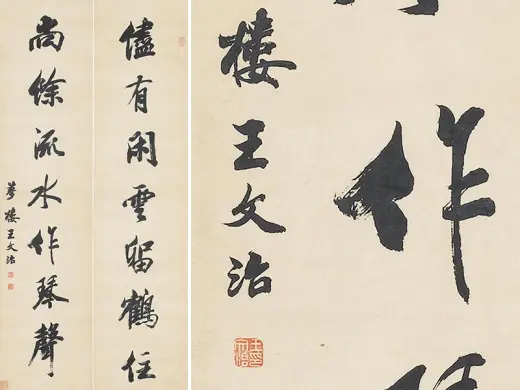 儘有閑雲留鶴住
尚餘流水作琴聲
夢樓王文治
作
樓王文治